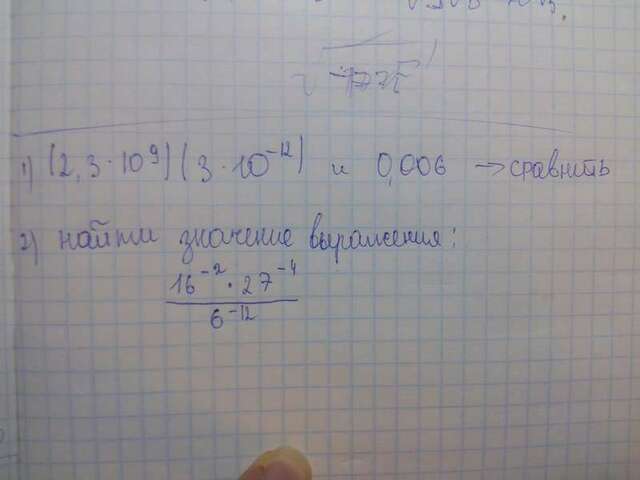 1) (2,3·10⁹)(3·10⁻¹²) и 0,006 → сравнить
2) найти значение выражения:
16⁻²·27⁻⁴
6⁻¹²